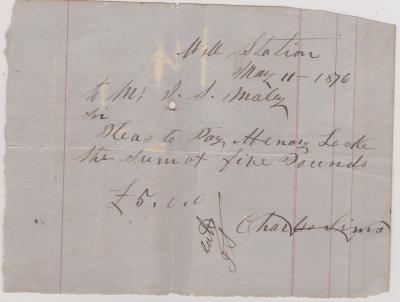 Station
May 11 - 1876
to Mr J. S. Maley
Sir
Pleas to Pay Henry Locke
the Sum of five Pounds
£5.0.0
Charles Sims